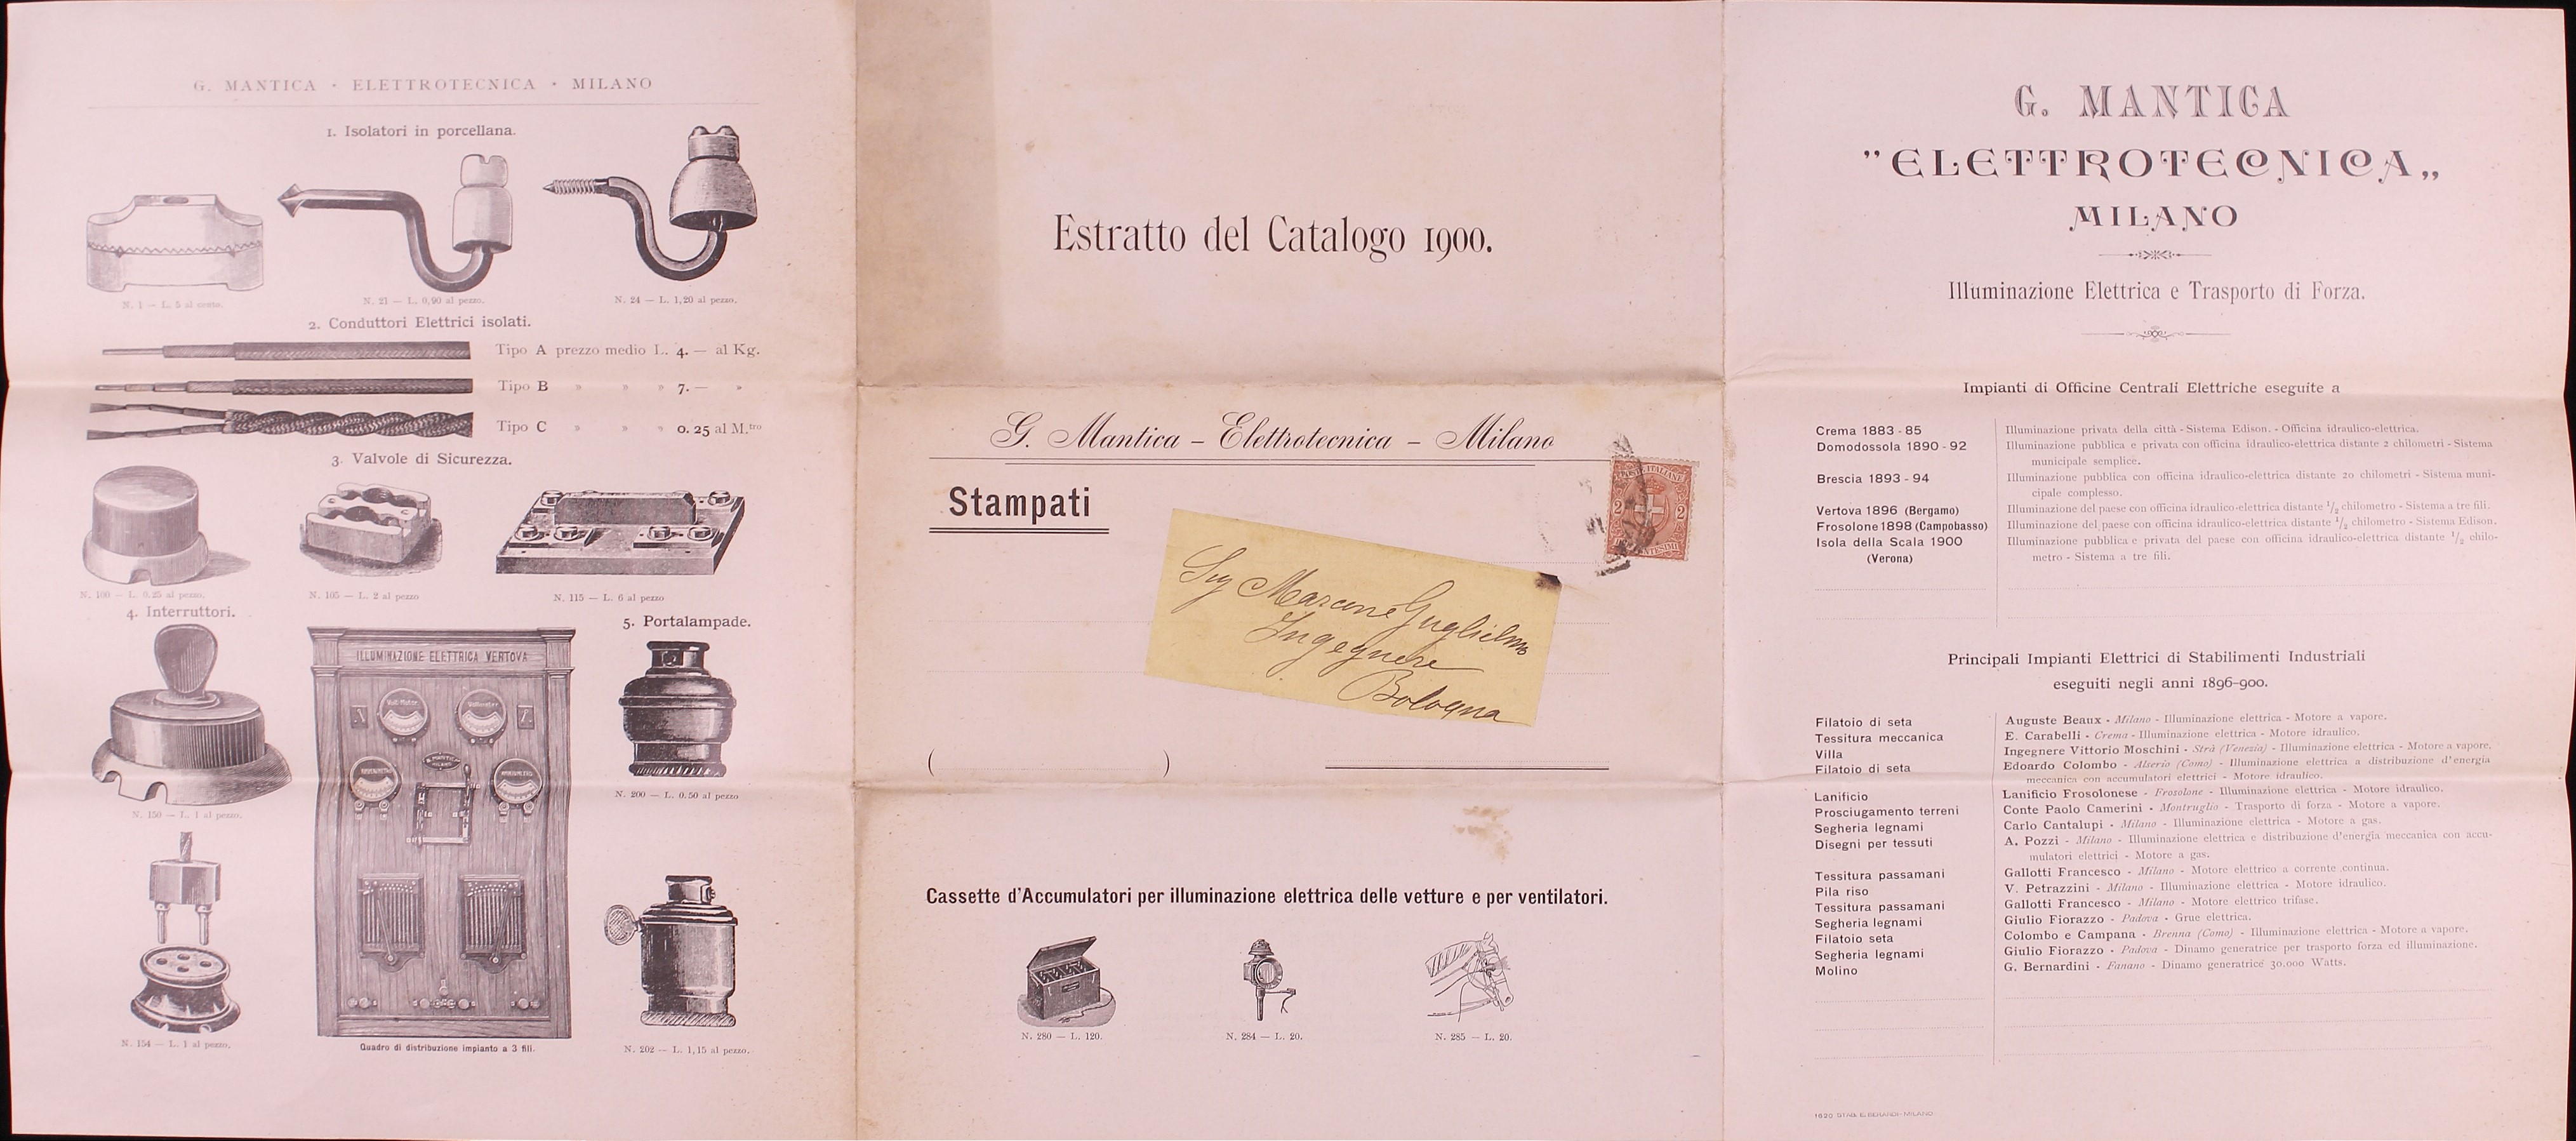 G. MANTICA - ELETTROTECNICA - MILANO
1. Isolatori in porcellana.
N. 1 — L. 5 al cento.
N. 21 — L. 0,90 al pezzo.
N. 24 — L. 1,20 al pezzo.
2. Conduttori Elettrici isolati.
Tipo A prezzo medio L. 4. — al Kg.
Tipo B » » » 7. — »
Tipo C » » » 0. 25 al M.tro
3. Valvole di Sicurezza.
N. 100 — L. 0.25 al pezzo.
N. 105 — L. 2 al pezzo
N. 115 — L. 6 al pezzo
4. Interruttori.
N. 150 — L. 1 al pezzo.
N. 154 — L. 1 al pezzo.
ILLUMINAZIONE ELETTRICA VERTOVA
G. MANTICA
MILANO
Quadro di distribuzione impianto a 3 fili.
5. Portalampade.
N. 200 — L. 0.50 al pezzo
N. 202 — L. 1,15 al pezzo.
Estratto del Catalogo 1900.
G. Mantica – Elettrotecnica – Milano
Stampati
2 2
Sig Marconi Guglielmo
Ingegnere
Bologna
( )
Cassette d'Accumulatori per illuminazione elettrica delle vetture e per ventilatori.
N. 280 — L. 120.
N. 284 — L. 20.
N. 285 — L. 20.
G. MANTICA
"ELETTROTECNICA„
MILANO
Illuminazione Elettrica e Trasporto di Forza.
Impianti di Officine Centrali Elettriche eseguite a
Crema 1883 - 85 Illuminazione privata della città - Sistema Edison. - Officina idraulico-elettrica.
Domodossola 1890 - 92 Illuminazione pubblica e privata con officina idraulico-elettrica distante 2 chilometri - Sistema
municipale semplice.
Brescia 1893 - 94 Illuminazione pubblica con officina idraulico-elettrica distante 20 chilometri - Sistema muni-
cipale complesso.
Vertova 1896 (Bergamo) Illuminazione del paese con officina idraulico-elettrica distante 1/2 chilometro - Sistema a tre fili.
Frosolone 1898 (Campobasso) Illuminazione del paese con officina idraulico-elettrica distante 1/2 chilometro - Sistema Edison.
Isola della Scala 1900 Illuminazione pubblica e privata del paese con officina idraulico-elettrica distante 1/2 chilo-
(Verona) metro - Sistema a tre fili.
Principali Impianti Elettrici di Stabilimenti Industriali
eseguiti negli anni 1896-900.
Filatoio di seta Auguste Beaux - Milano - Illuminazione elettrica - Motore a vapore.
Tessitura meccanica E. Carabelli - Crema - Illuminazione elettrica - Motore idraulico.
Villa Ingegnere Vittorio Moschini - Strà (Venezia) - Illuminazione elettrica - Motore a vapore.
Filatoio di seta Edoardo Colombo - Alserio (Como) - Illuminazione elettrica a distribuzione d'energia
meccanica con accumulatori elettrici - Motore idraulico.
Lanificio Lanificio Frosolonese - Frosolone - Illuminazione elettrica - Motore idraulico.
Prosciugamento terreni Conte Paolo Camerini - Montruglio - Trasporto di forza - Motore a vapore.
Segheria legnami Carlo Cantalupi - Milano - Illuminazione elettrica - Motore a gas.
Disegni per tessuti A. Pozzi - Milano - Illuminazione elettrica e distribuzione d'energia meccanica con accu-
mulatori elettrici - Motore a gas.
Tessitura passamani Gallotti Francesco - Milano - Motore elettrico a corrente continua.
Pila riso V. Petrazzini - Milano - Illuminazione elettrica - Motore idraulico.
Tessitura passamani Gallotti Francesco - Milano - Motore elettrico trifase.
Segheria legnami Giulio Fiorazzo - Padova - Grue elettrica.
Filatoio seta Colombo e Campana - Brenna (Como) - Illuminazione elettrica - Motore a vapore.
Segheria legnami Giulio Fiorazzo - Padova - Dinamo generatrice per trasporto forza ed illuminazione.
Molino G. Bernardini - Fanano - Dinamo generatrice 30.000 Watts.
1620 STAB. E. BERARDI-MILANO